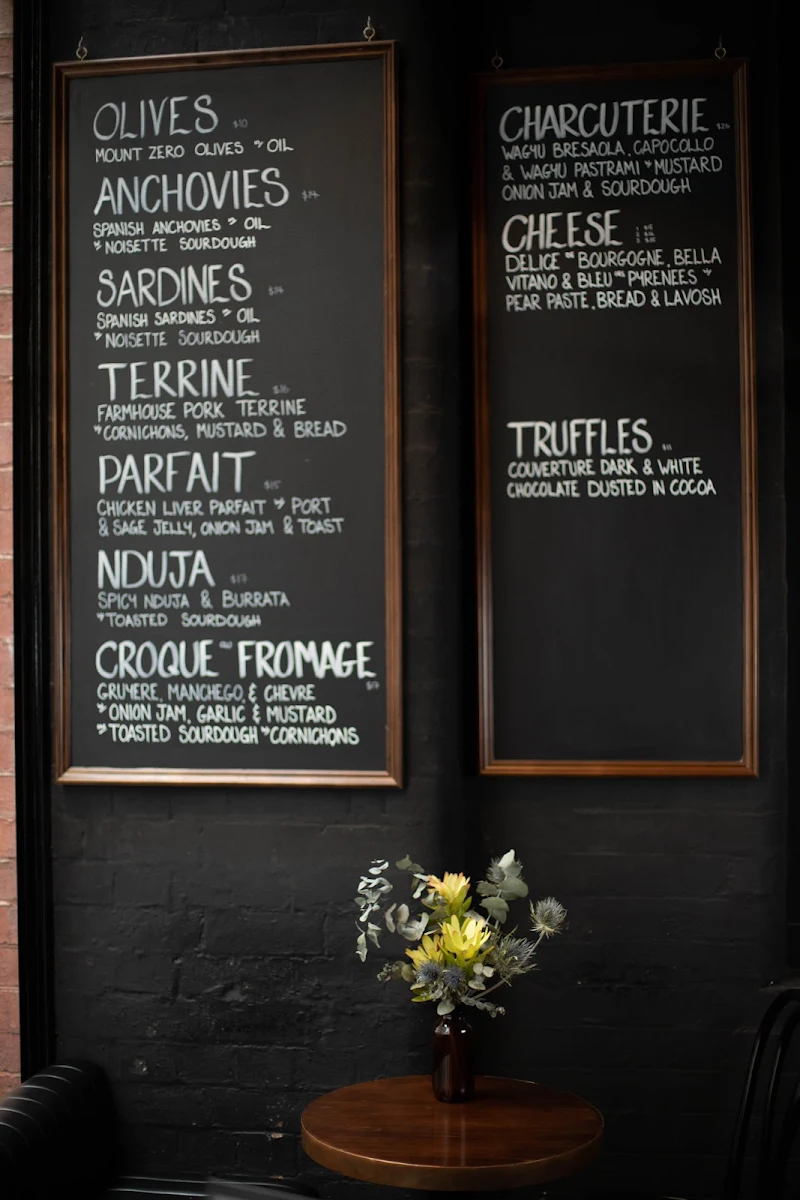 OLIVES $10
MOUNT ZERO OLIVES w/ OIL
ANCHOVIES
SPANISH ANCHOVIES w/ OIL
w/ NOISETTE SOURDOUGH
SARDINES
SPANISH SARDINES w/ OIL
w/ NOISETTE SOURDOUGH
TERRINE
FARMHOUSE PORK TERRINE
w/ CORNICHONS, MUSTARD & BREAD
PARFAIT
CHICKEN LIVER PARFAIT w/ PORT
& SAGE JELLY, ONION JAM & TOAST
NDUJA $17
SPICY NDUJA & BURRATA
w/ TOASTED SOURDOUGH
CROQUE FROMAGE
GRUYERE, MANCHEGO, & CHEVRE
w/ ONION JAM, GARLIC & MUSTARD
w/ TOASTED SOURDOUGH w/ CORNICHONS
CHARCUTERIE
WAGYU BRESAOLA, CAPOCOLLO
& WAGYU PASTRAMI w/ MUSTARD
ONION JAM & SOURDOUGH
CHEESE
DELICE DE BOURGOGNE, BELLA
VITANO & BLEU DES PYRENEES w/
PEAR PASTE, BREAD & LAVOSH
TRUFFLES $11
COUVERTURE DARK & WHITE
CHOCOLATE DUSTED IN COCOA